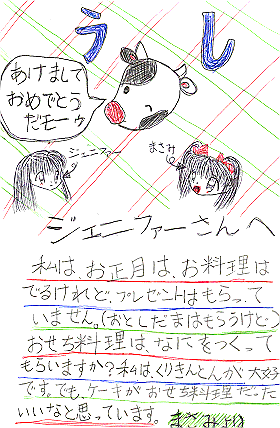 うし
あけまして
おめでとう
だモーゥ
ジェニファー
まさみ
ジェニファーさんへ
私は、お正月は、お料理は
でるけれど、プレゼントはもらって
いません。(おとしだまはもらうけど)
おせち料理は、なにをつくって
もらいますか?私はくりきんとんが大好
です。でも、ケーキがおせち料理だった
いいなと思っています。